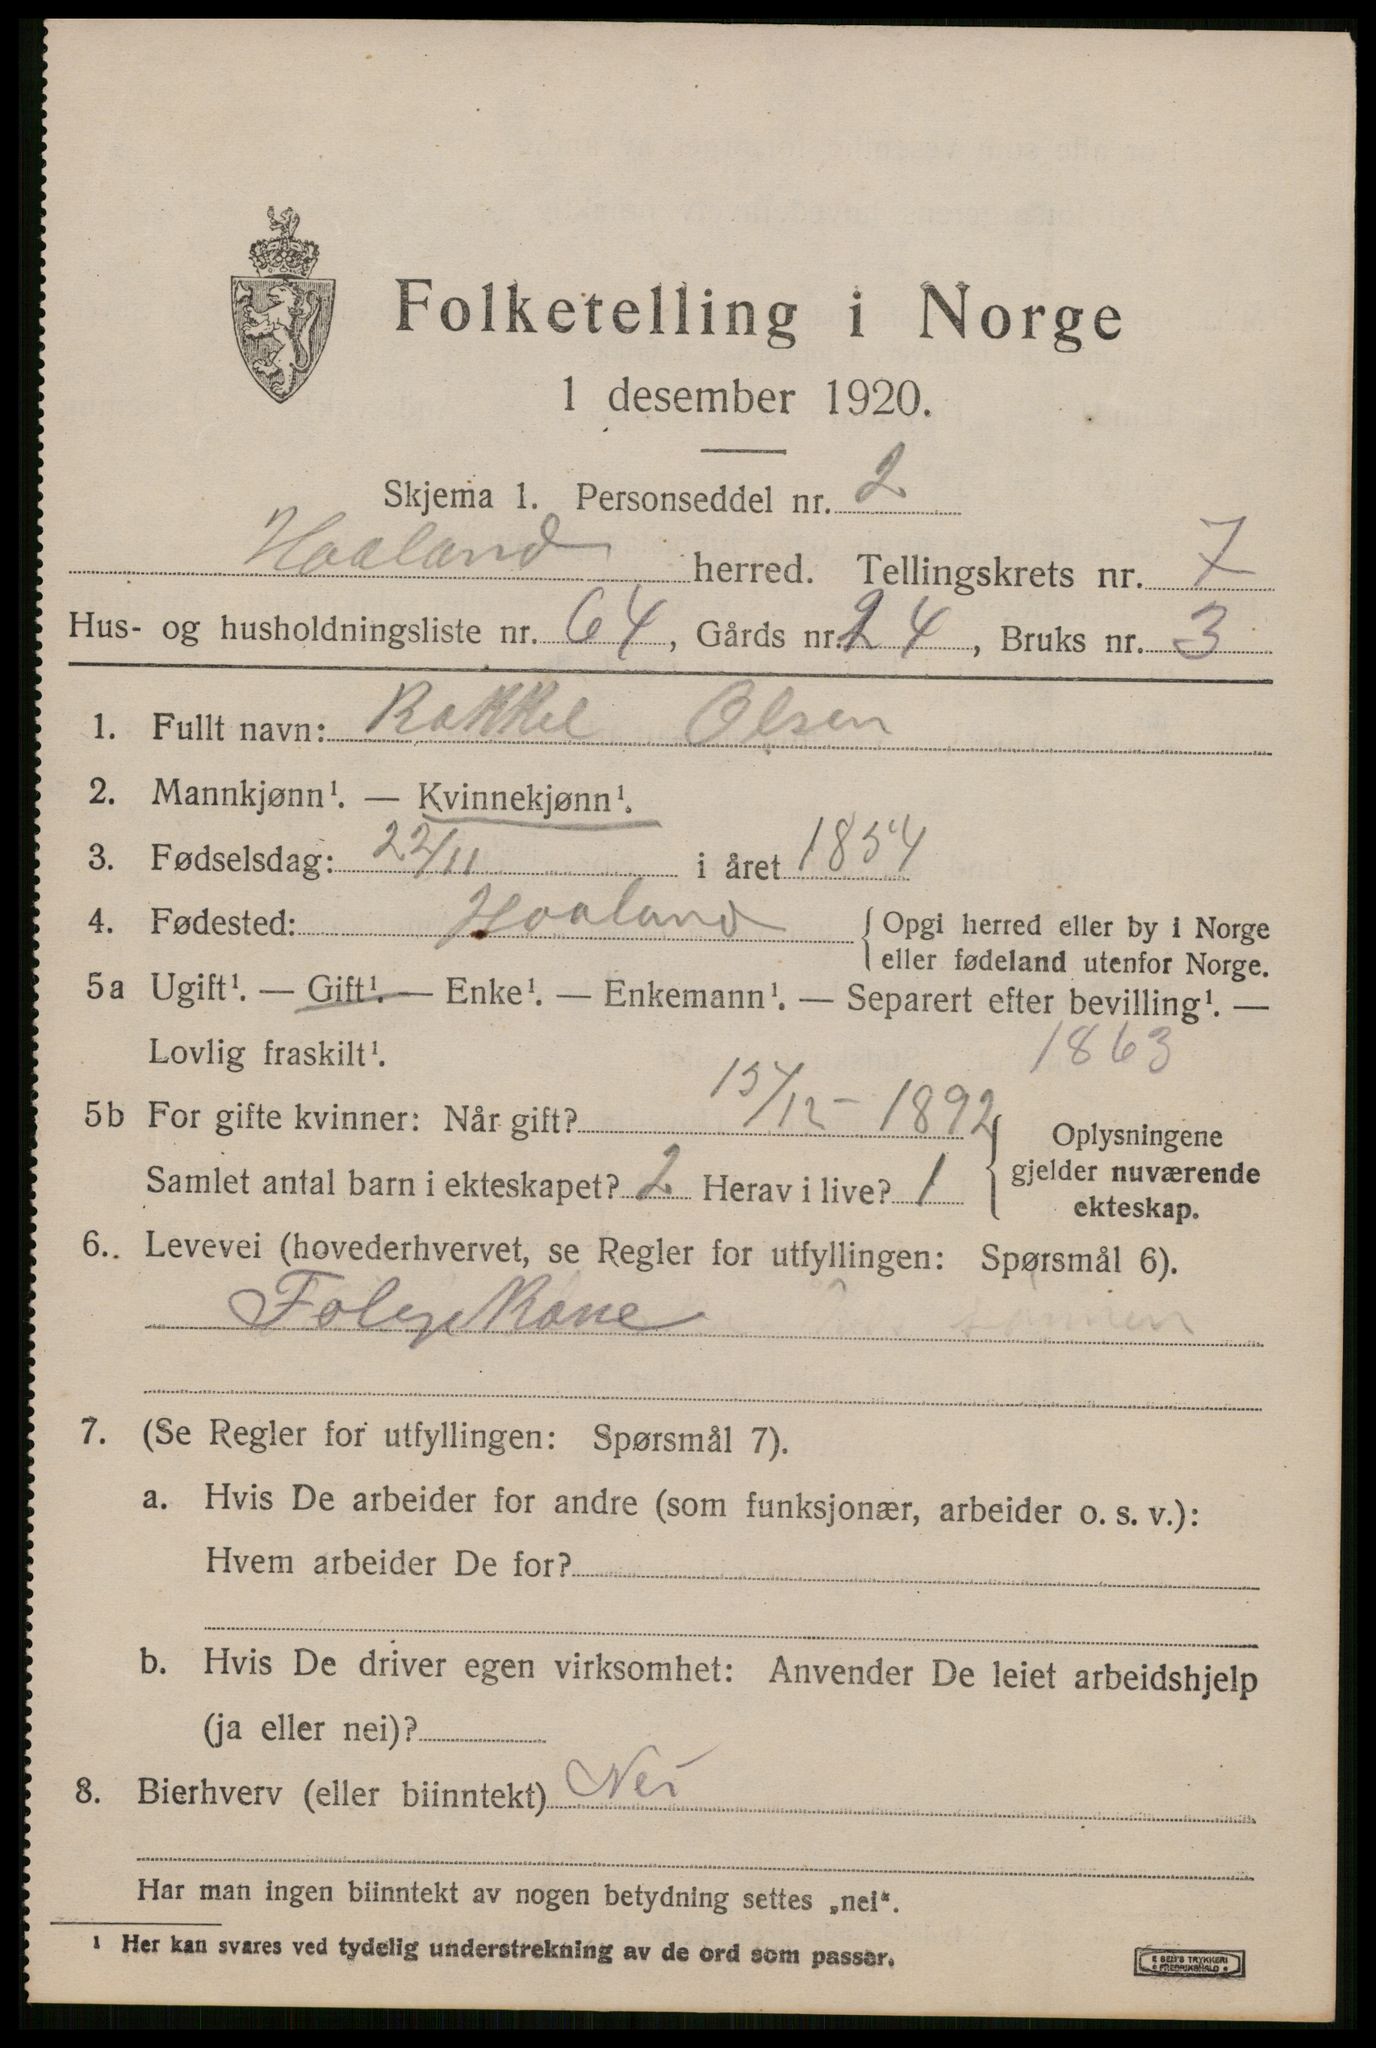 Folketelling i Norge
1 desember 1920.
Skjema 1. Personseddel nr. 2
Haaland herred. Tellingskrets nr. 7
Hus- og husholdningsliste nr. 64, Gårds nr. 24, Bruks nr. 3
1. Fullt navn: Rakkel Olsen
2. Mannkjønn¹. — Kvinnekjønn¹.
3. Fødselsdag: 22/11 i året 1854
4. Fødested: Haaland { Opgi herred eller by i Norge
eller fødeland utenfor Norge.
5a Ugift¹. — Gift¹. — Enke¹. — Enkemann¹. — Separert efter bevilling¹. —
Lovlig fraskilt¹. 1863
5b For gifte kvinner: Når gift? 15/12 - 1892
Samlet antal barn i ekteskapet? 2 Herav i live? 1
{ Oplysningene
gjelder nuværende
ekteskap.
6. Levevei (hovederhvervet, se Regler for utfyllingen: Spørsmål 6).
7. (Se Regler for utfyllingen: Spørsmål 7).
a. Hvis De arbeider for andre (som funksjonær, arbeider o. s. v.):
Hvem arbeider De for?
b. Hvis De driver egen virksomhet: Anvender De leiet arbeidshjelp
(ja eller nei)?
8. Bierhverv (eller biinntekt) Nei
Har man ingen biinntekt av nogen betydning settes „nei".
¹ Her kan svares ved tydelig understrekning av de ord som passer.
E SEM'S TRYKKERI
FREDRIKSHALD